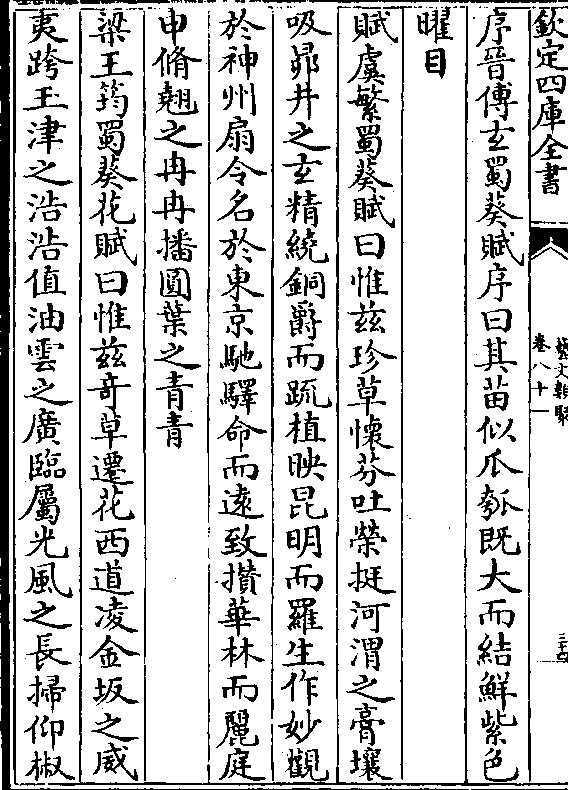 欽定四庫全書
藝文類聚
卷八十一
序晉傅玄蜀葵賦序曰其苗似瓜瓠既大而結鮮紫色
曜目
賦虞繁蜀葵賦曰惟兹珍草懷芬吐榮挺河渭之膏壤
吸昴井之玄精繞銅爵而疏植映昆明而羅生作妙觀
於神州扇令名於東京馳驛命而遠致攢華林而麗庭
申脩翹之冉冉播圓葉之青青
梁王筠蜀葵花賦曰惟兹奇草遷花西道凌金坂之威
夷跨玉津之浩浩值油雲之廣臨屬光風之長掃仰椒